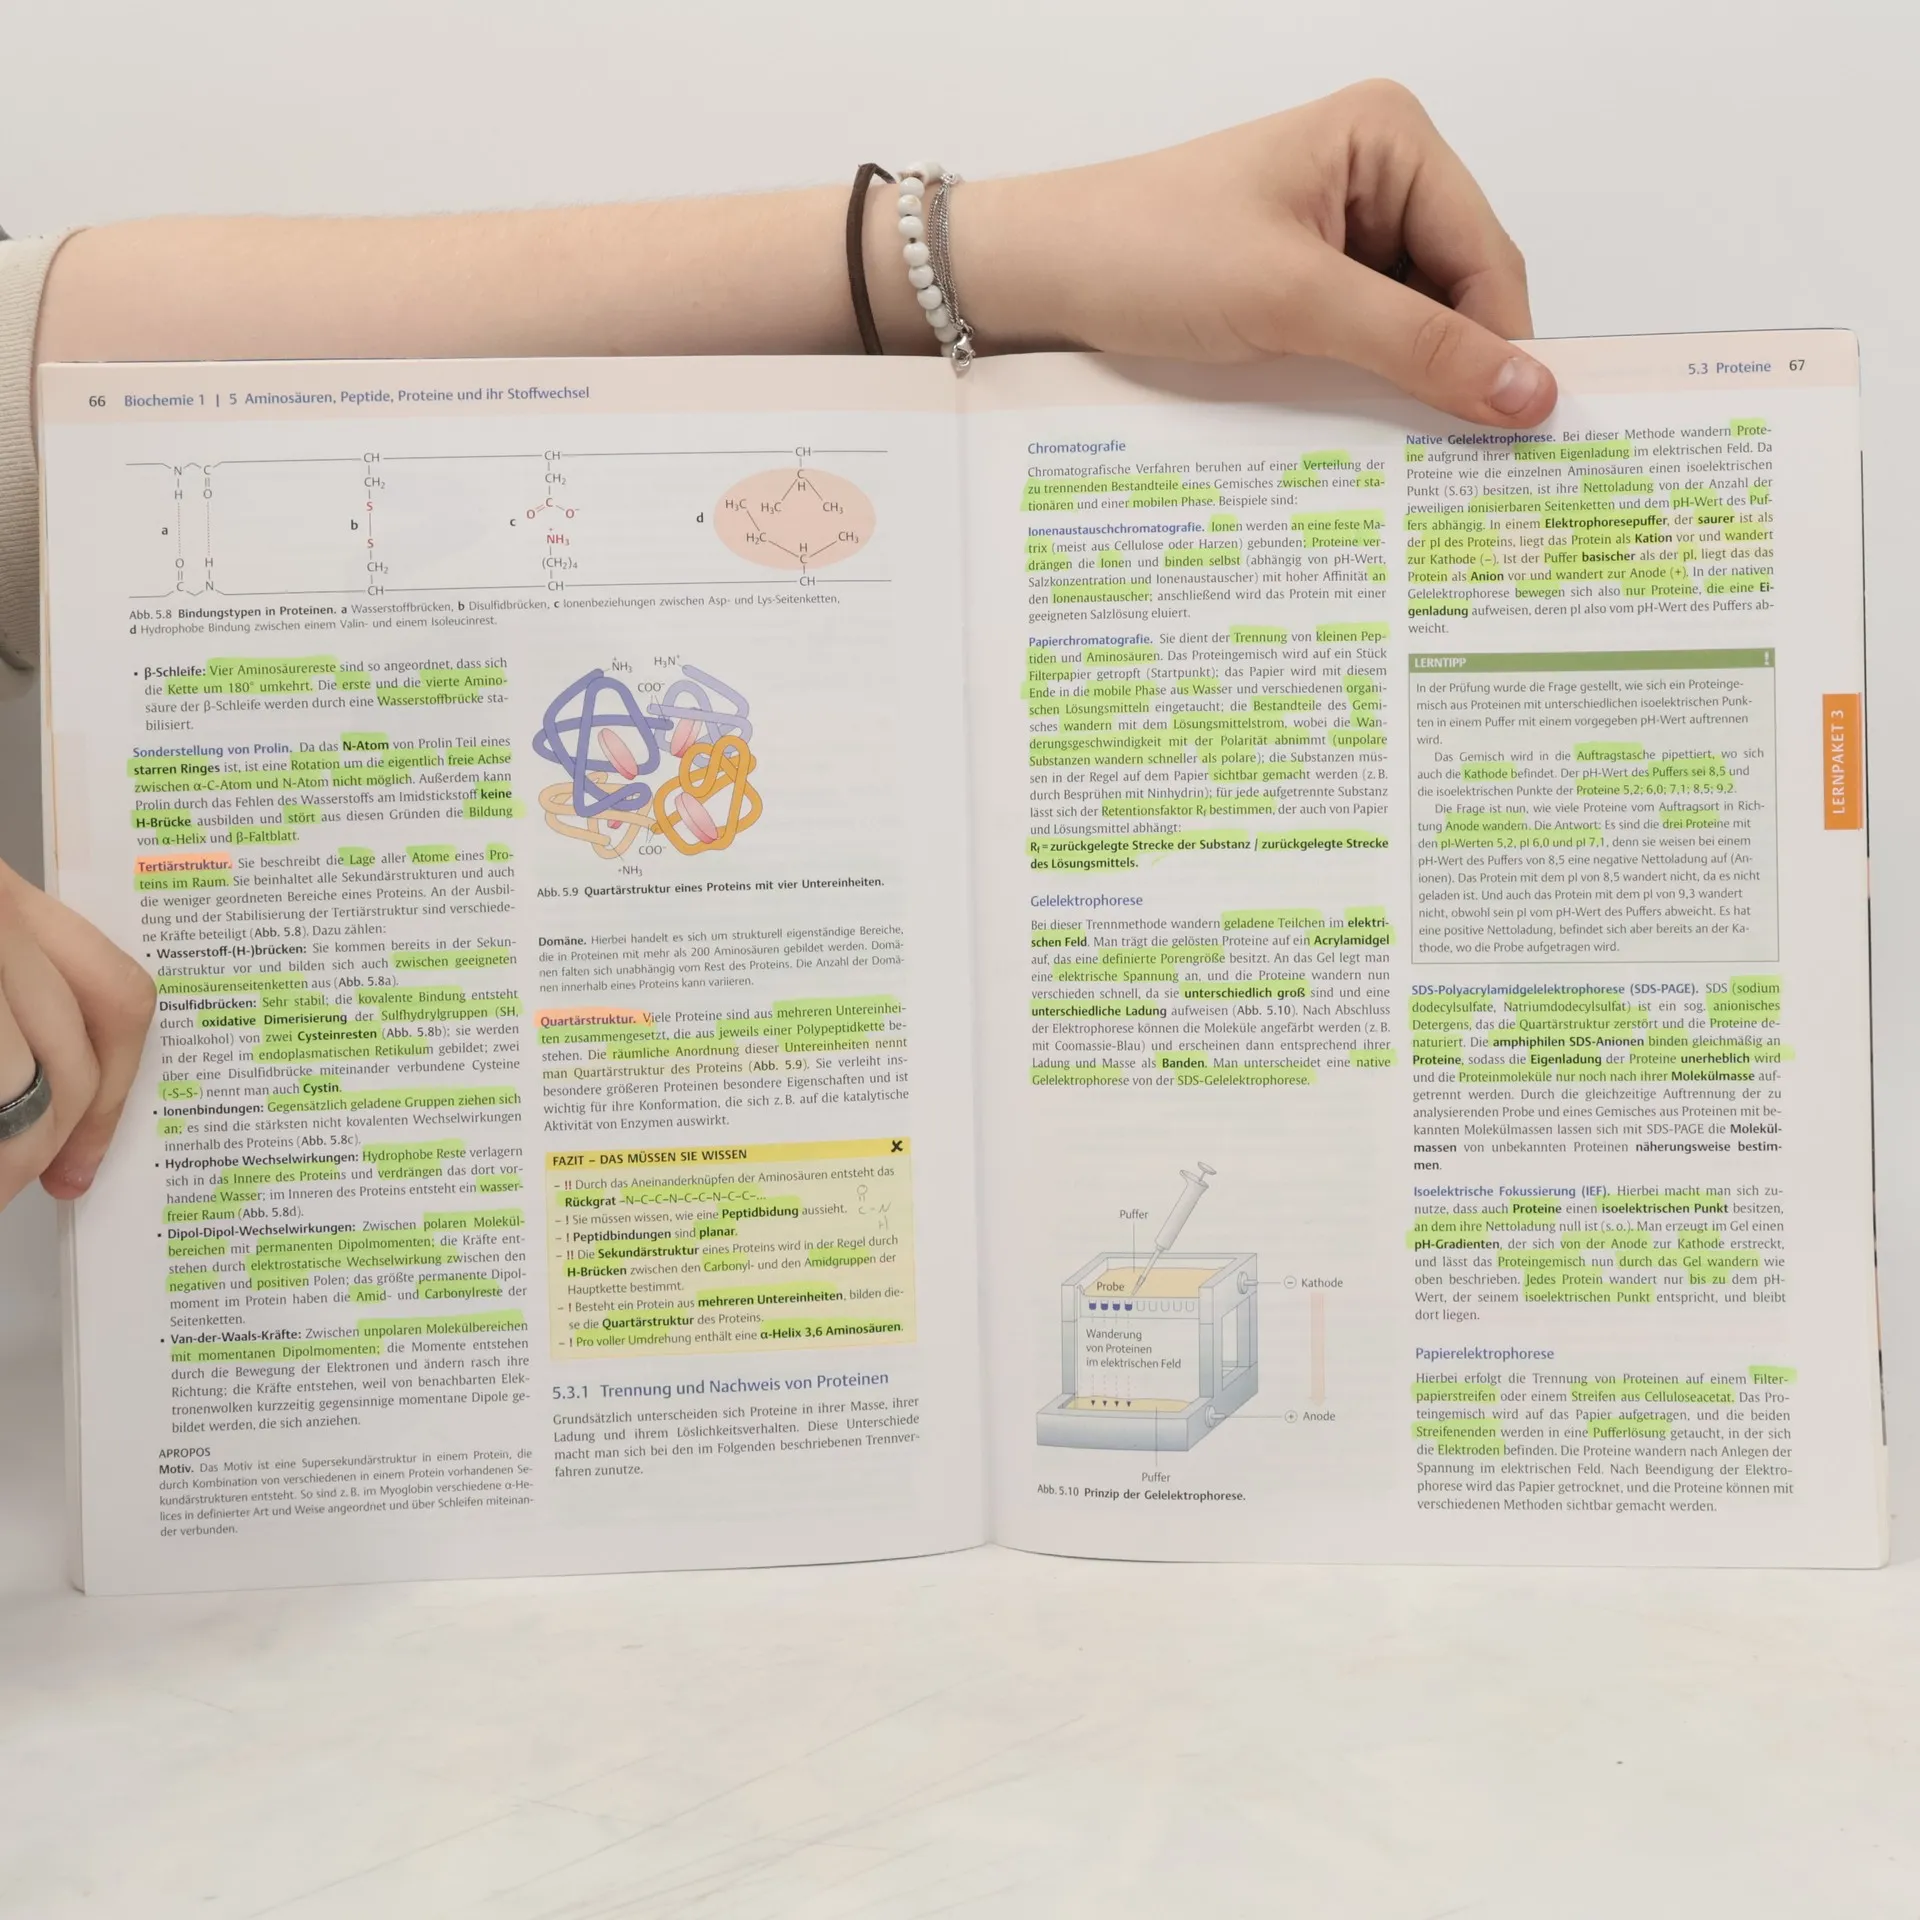 66 Biochemie 1 | 5 Aminosäuren, Peptide, Proteine und ihr Stoffwechsel
N C
H O
a
O H
C N
CH
CH₂
S
b
S
CH₂
CH
CH
CH₂
C
c O O⁻
+
NH₃
(CH₂)₄
CH
CH
C
H
H₃C H₃C CH₃
d
H₂C H CH₃
C
CH
Abb. 5.8 Bindungstypen in Proteinen. a Wasserstoffbrücken, b Disulfidbrücken, c Ionenbeziehungen zwischen Asp- und Lys-Seitenketten,
d Hydrophobe Bindung zwischen einem Valin- und einem Isoleucinrest.
▪ β-Schleife: Vier Aminosäurereste sind so angeordnet, dass sich
die Kette um 180° umkehrt. Die erste und die vierte Amino-
säure der β-Schleife werden durch eine Wasserstoffbrücke sta-
bilisiert.
Sonderstellung von Prolin. Da das N-Atom von Prolin Teil eines
starren Ringes ist, ist eine Rotation um die eigentlich freie Achse
zwischen α-C-Atom und N-Atom nicht möglich. Außerdem kann
Prolin durch das Fehlen des Wasserstoffs am Imidstickstoff keine
H-Brücke ausbilden und stört aus diesen Gründen die Bildung
von α-Helix und β-Faltblatt.
Tertiärstruktur. Sie beschreibt die Lage aller Atome eines Pro-
teins im Raum. Sie beinhaltet alle Sekundärstrukturen und auch
die weniger geordneten Bereiche eines Proteins. An der Ausbil-
dung und der Stabilisierung der Tertiärstruktur sind verschiede-
ne Kräfte beteiligt (Abb. 5.8). Dazu zählen:
▪ Wasserstoff-(H-)brücken: Sie kommen bereits in der Sekun-
därstruktur vor und bilden sich auch zwischen geeigneten
Aminosäurenseitenketten aus (Abb. 5.8a).
Disulfidbrücken: Sehr stabil; die kovalente Bindung entsteht
durch oxidative Dimerisierung der Sulfhydrylgruppen (SH,
Thioalkohol) von zwei Cysteinresten (Abb. 5.8b); sie werden
in der Regel im endoplasmatischen Retikulum gebildet; zwei
über eine Disulfidbrücke miteinander verbundene Cysteine
(-S–S-) nennt man auch Cystin.
▪ Ionenbindungen: Gegensätzlich geladene Gruppen ziehen sich
an; es sind die stärksten nicht kovalenten Wechselwirkungen
innerhalb des Proteins (Abb. 5.8c).
▪ Hydrophobe Wechselwirkungen: Hydrophobe Reste verlagern
sich in das Innere des Proteins und verdrängen das dort vor-
handene Wasser; im Inneren des Proteins entsteht ein wasser-
freier Raum (Abb. 5.8d).
▪ Dipol-Dipol-Wechselwirkungen: Zwischen polaren Molekül-
bereichen mit permanenten Dipolmomenten; die Kräfte ent-
stehen durch elektrostatische Wechselwirkung zwischen den
negativen und positiven Polen; das größte permanente Dipol-
moment im Protein haben die Amid- und Carbonylreste der
Seitenketten.
▪ Van-der-Waals-Kräfte: Zwischen unpolaren Molekülbereichen
mit momentanen Dipolmomenten; die Momente entstehen
durch die Bewegung der Elektronen und ändern rasch ihre
Richtung; die Kräfte entstehen, weil von benachbarten Elek-
tronenwolken kurzzeitig gegensinnige momentane Dipole ge-
bildet werden, die sich anziehen.
APROPOS
Motiv. Das Motiv ist eine Supersekundärstruktur in einem Protein, die
durch Kombination von verschiedenen in einem Protein vorhandenen Se-
kundärstrukturen entsteht. So sind z. B. im Myoglobin verschiedene α-He-
lices in definierter Art und Weise angeordnet und über Schleifen miteinan-
der verbunden.
+
NH₃ H₃N⁺
COO⁻
COO⁻
⁺NH₃
Abb. 5.9 Quartärstruktur eines Proteins mit vier Untereinheiten.
Domäne. Hierbei handelt es sich um strukturell eigenständige Bereiche,
die in Proteinen mit mehr als 200 Aminosäuren gebildet werden. Domä-
nen falten sich unabhängig vom Rest des Proteins. Die Anzahl der Domä-
nen innerhalb eines Proteins kann variieren.
Quartärstruktur. Viele Proteine sind aus mehreren Untereinhei-
ten zusammengesetzt, die aus jeweils einer Polypeptidkette be-
stehen. Die räumliche Anordnung dieser Untereinheiten nennt
man Quartärstruktur des Proteins (Abb. 5.9). Sie verleiht ins-
besondere größeren Proteinen besondere Eigenschaften und ist
wichtig für ihre Konformation, die sich z. B. auf die katalytische
Aktivität von Enzymen auswirkt.
FAZIT – DAS MÜSSEN SIE WISSEN
– !! Durch das Aneinanderknüpfen der Aminosäuren entsteht das
Rückgrat –N–C–C–N–C–C–N–C–C–...
– ! Sie müssen wissen, wie eine Peptidbidung aussieht.
O
C-N
H
– ! Peptidbindungen sind planar.
– !! Die Sekundärstruktur eines Proteins wird in der Regel durch
H-Brücken zwischen den Carbonyl- und den Amidgruppen der
Hauptkette bestimmt.
– ! Besteht ein Protein aus mehreren Untereinheiten, bilden die-
se die Quartärstruktur des Proteins.
– ! Pro voller Umdrehung enthält eine α-Helix 3,6 Aminosäuren.
5.3.1 Trennung und Nachweis von Proteinen
Grundsätzlich unterscheiden sich Proteine in ihrer Masse, ihrer
Ladung und ihrem Löslichkeitsverhalten. Diese Unterschiede
macht man sich bei den im Folgenden beschriebenen Trennver-
fahren zunutze.
5.3 Proteine 67
Chromatografie
Chromatografische Verfahren beruhen auf einer Verteilung der
zu trennenden Bestandteile eines Gemisches zwischen einer sta-
tionären und einer mobilen Phase. Beispiele sind:
Ionenaustauschchromatografie. Ionen werden an eine feste Ma-
trix (meist aus Cellulose oder Harzen) gebunden; Proteine ver-
drängen die Ionen und binden selbst (abhängig von pH-Wert,
Salzkonzentration und Ionenaustauscher) mit hoher Affinität an
den Ionenaustauscher; anschließend wird das Protein mit einer
geeigneten Salzlösung eluiert.
Papierchromatografie. Sie dient der Trennung von kleinen Pep-
tiden und Aminosäuren. Das Proteingemisch wird auf ein Stück
Filterpapier getropft (Startpunkt); das Papier wird mit diesem
Ende in die mobile Phase aus Wasser und verschiedenen organi-
schen Lösungsmitteln eingetaucht; die Bestandteile des Gemi-
sches wandern mit dem Lösungsmittelstrom, wobei die Wan-
derungsgeschwindigkeit mit der Polarität abnimmt (unpolare
Substanzen wandern schneller als polare); die Substanzen müs-
sen in der Regel auf dem Papier sichtbar gemacht werden (z. B.
durch Besprühen mit Ninhydrin); für jede aufgetrennte Substanz
lässt sich der Retentionsfaktor Rf bestimmen, der auch von Papier
und Lösungsmittel abhängt:
Rf = zurückgelegte Strecke der Substanz / zurückgelegte Strecke
des Lösungsmittels.
Gelelektrophorese
Bei dieser Trennmethode wandern geladene Teilchen im elektri-
schen Feld. Man trägt die gelösten Proteine auf ein Acrylamidgel
auf, das eine definierte Porengröße besitzt. An das Gel legt man
eine elektrische Spannung an, und die Proteine wandern nun
verschieden schnell, da sie unterschiedlich groß sind und eine
unterschiedliche Ladung aufweisen (Abb. 5.10). Nach Abschluss
der Elektrophorese können die Moleküle angefärbt werden (z. B.
mit Coomassie-Blau) und erscheinen dann entsprechend ihrer
Ladung und Masse als Banden. Man unterscheidet eine native
Gelelektrophorese von der SDS-Gelelektrophorese.
Puffer
Probe
– Kathode
Wanderung
von Proteinen
im elektrischen Feld
+ Anode
Puffer
Abb. 5.10 Prinzip der Gelelektrophorese.
Native Gelelektrophorese. Bei dieser Methode wandern Prote-
ine aufgrund ihrer nativen Eigenladung im elektrischen Feld. Da
Proteine wie die einzelnen Aminosäuren einen isoelektrischen
Punkt (S. 63) besitzen, ist ihre Nettoladung von der Anzahl der
jeweiligen ionisierbaren Seitenketten und dem pH-Wert des Puf-
fers abhängig. In einem Elektrophoresepuffer, der saurer ist als
der pI des Proteins, liegt das Protein als Kation vor und wandert
zur Kathode (–). Ist der Puffer basischer als der pI, liegt das das
Protein als Anion vor und wandert zur Anode (+). In der nativen
Gelelektrophorese bewegen sich also nur Proteine, die eine Ei-
genladung aufweisen, deren pI also vom pH-Wert des Puffers ab-
weicht.
LERNTIPP !
In der Prüfung wurde die Frage gestellt, wie sich ein Proteinge-
misch aus Proteinen mit unterschiedlichen isoelektrischen Punk-
ten in einem Puffer mit einem vorgegeben pH-Wert auftrennen
wird.
Das Gemisch wird in die Auftragstasche pipettiert, wo sich
auch die Kathode befindet. Der pH-Wert des Puffers sei 8,5 und
die isoelektrischen Punkte der Proteine 5,2; 6,0; 7,1; 8,5; 9,2.
Die Frage ist nun, wie viele Proteine vom Auftragsort in Rich-
tung Anode wandern. Die Antwort: Es sind die drei Proteine mit
den pI-Werten 5,2, pI 6,0 und pI 7,1, denn sie weisen bei einem
pH-Wert des Puffers von 8,5 eine negative Nettoladung auf (An-
ionen). Das Protein mit dem pI von 8,5 wandert nicht, da es nicht
geladen ist. Und auch das Protein mit dem pI von 9,3 wandert
nicht, obwohl sein pI vom pH-Wert des Puffers abweicht. Es hat
eine positive Nettoladung, befindet sich aber bereits an der Ka-
thode, wo die Probe aufgetragen wird.
SDS-Polyacrylamidgelelektrophorese (SDS-PAGE). SDS (sodium
dodecylsulfate, Natriumdodecylsulfat) ist ein sog. anionisches
Detergens, das die Quartärstruktur zerstört und die Proteine de-
naturiert. Die amphiphilen SDS-Anionen binden gleichmäßig an
Proteine, sodass die Eigenladung der Proteine unerheblich wird
und die Proteinmoleküle nur noch nach ihrer Molekülmasse auf-
getrennt werden. Durch die gleichzeitige Auftrennung der zu
analysierenden Probe und eines Gemisches aus Proteinen mit be-
kannten Molekülmassen lassen sich mit SDS-PAGE die Molekül-
massen von unbekannten Proteinen näherungsweise bestim-
men.
Isoelektrische Fokussierung (IEF). Hierbei macht man sich zu-
nutze, dass auch Proteine einen isoelektrischen Punkt besitzen,
an dem ihre Nettoladung null ist (s. o.). Man erzeugt im Gel einen
pH-Gradienten, der sich von der Anode zur Kathode erstreckt,
und lässt das Proteingemisch nun durch das Gel wandern wie
oben beschrieben. Jedes Protein wandert nur bis zu dem pH-
Wert, der seinem isoelektrischen Punkt entspricht, und bleibt
dort liegen.
Papierelektrophorese
Hierbei erfolgt die Trennung von Proteinen auf einem Filter-
papierstreifen oder einem Streifen aus Celluloseacetat. Das Pro-
teingemisch wird auf das Papier aufgetragen, und die beiden
Streifenenden werden in eine Pufferlösung getaucht, in der sich
die Elektroden befinden. Die Proteine wandern nach Anlegen der
Spannung im elektrischen Feld. Nach Beendigung der Elektro-
phorese wird das Papier getrocknet, und die Proteine können mit
verschiedenen Methoden sichtbar gemacht werden.
LERNPAKET 3